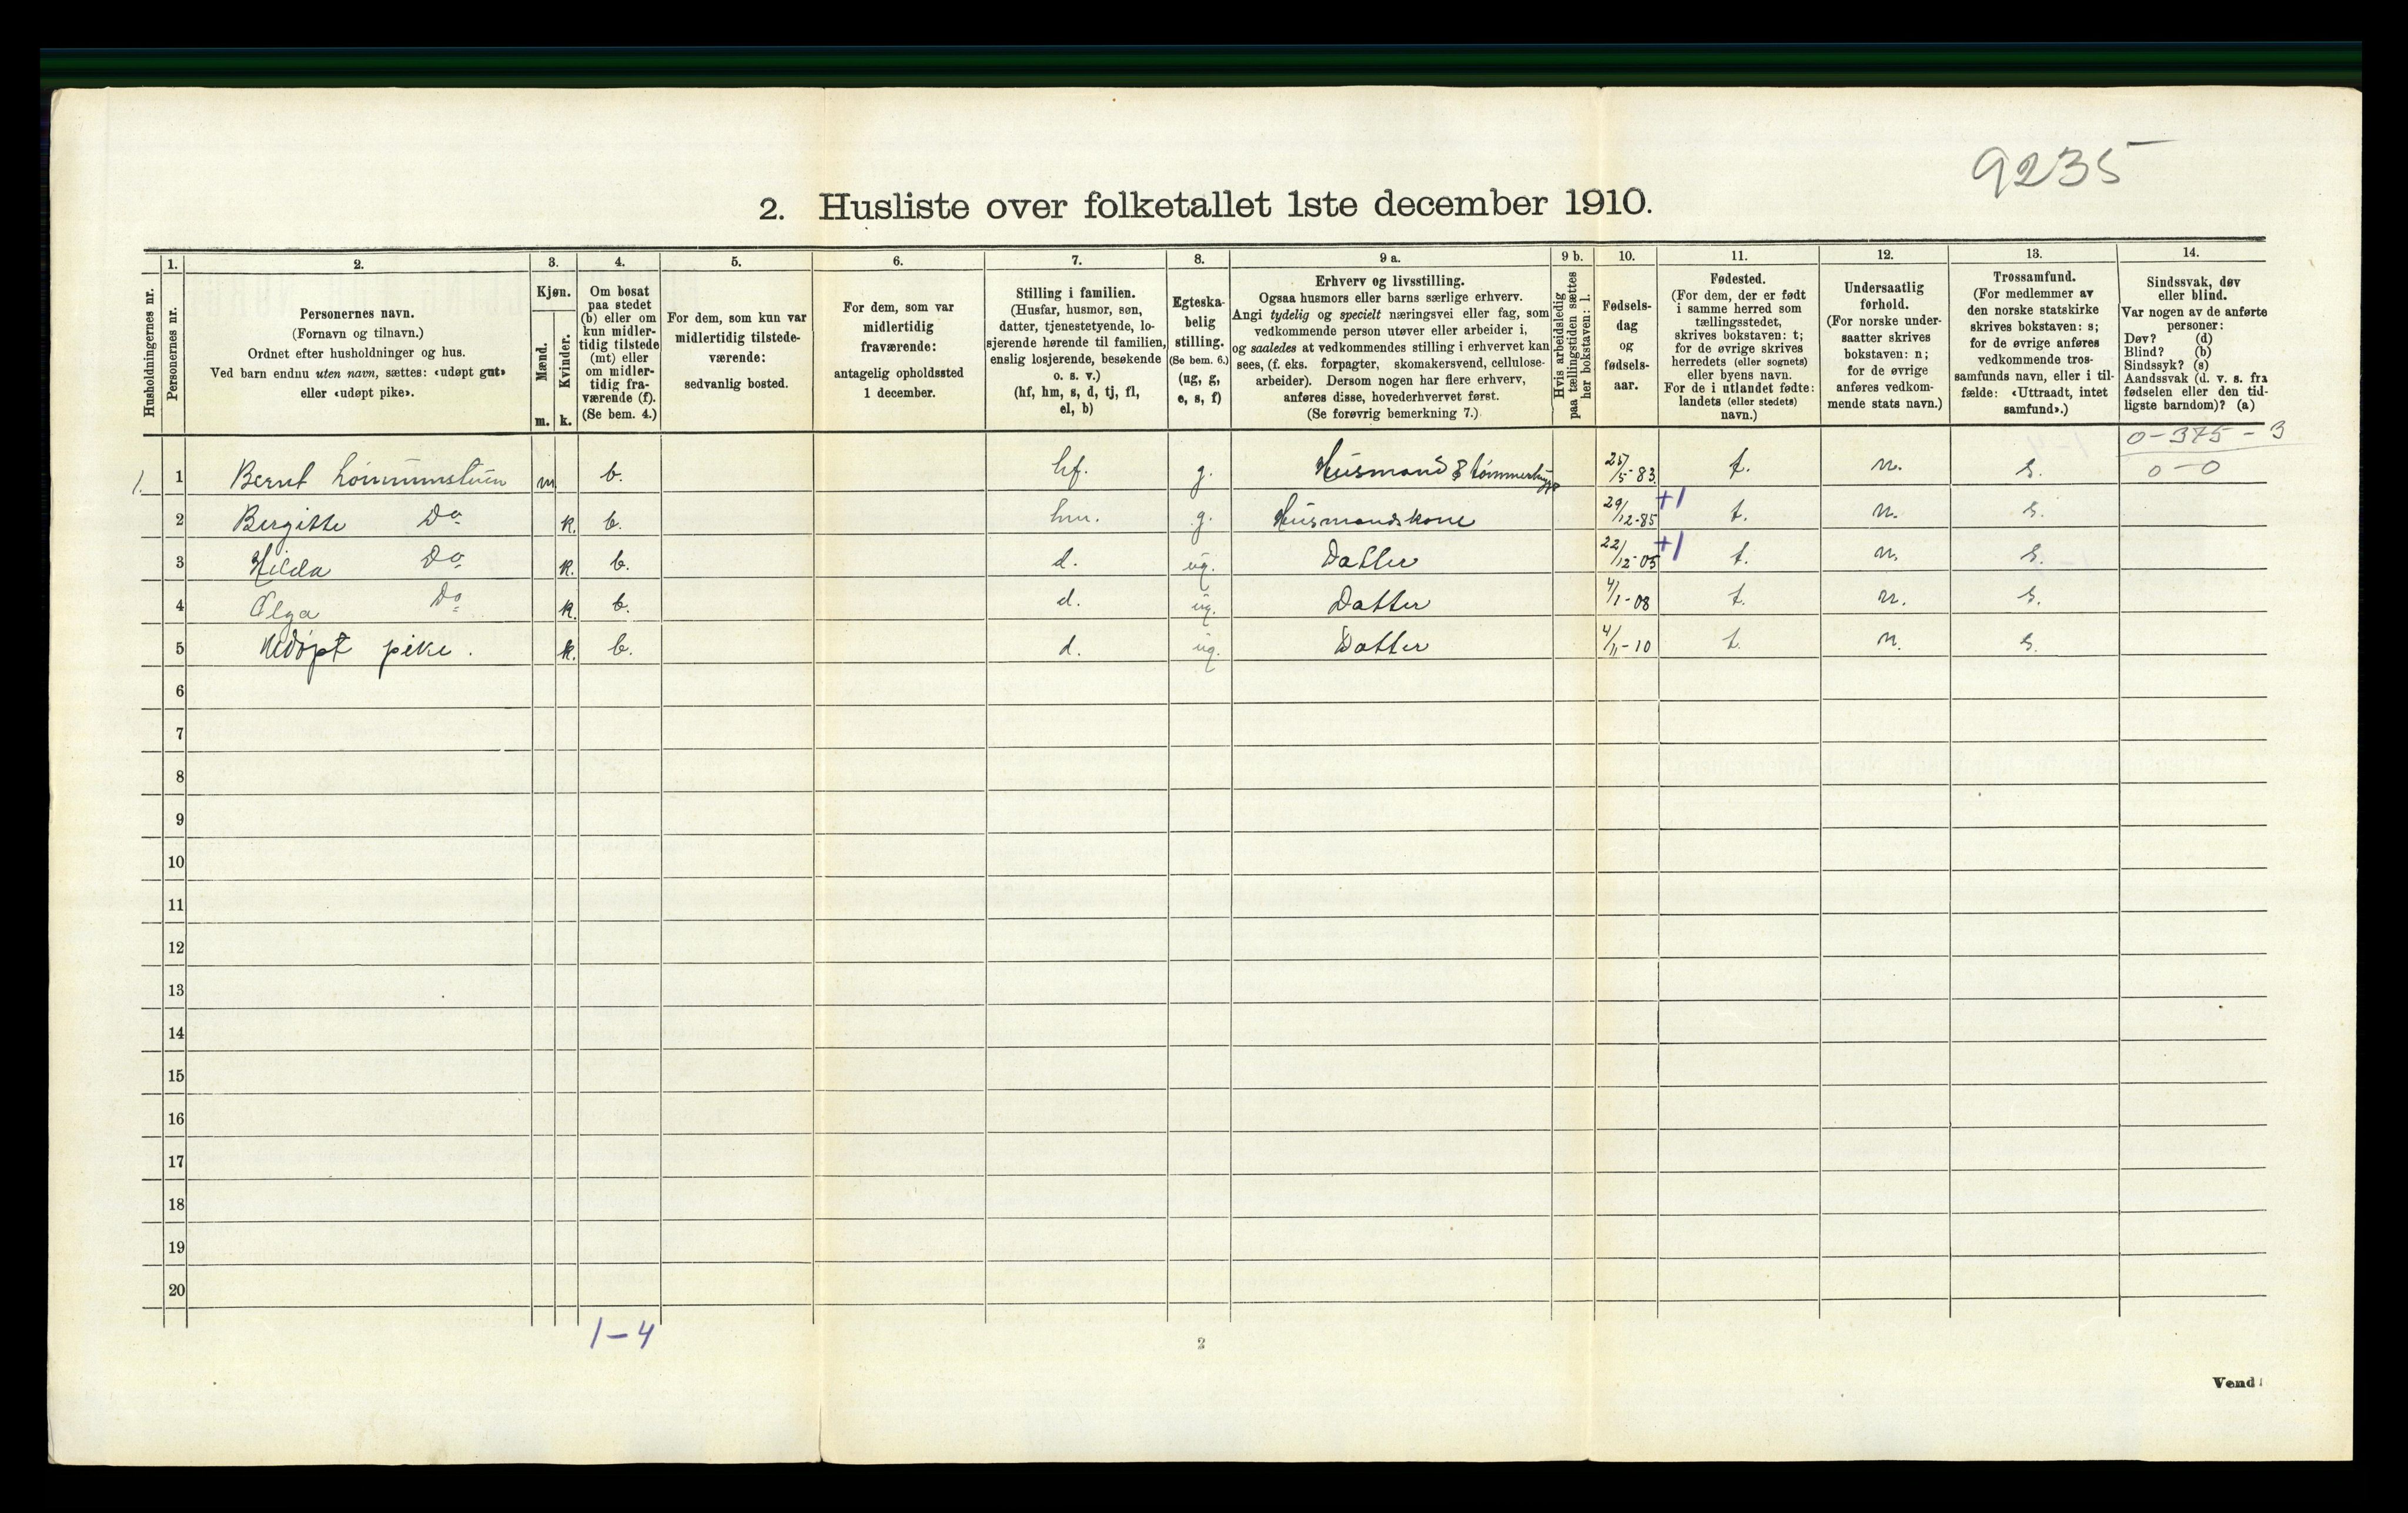 9235
2. Husliste over folketallet 1ste december 1910.
Husholdningernes nr.
1.
Personernes nr.
2.
Personernes navn.
(Fornavn og tilnavn.)
Ordnet efter husholdninger og hus.
Ved barn endnu uten navn, sættes: «udøpt gut»
eller «udøpt pike».
3.
Kjøn.
Mænd.
m.
Kvinder.
k.
4.
Om bosat
paa stedet
(b) eller om
kun midler-
tidig tilstede
(mt) eller
om midler-
tidig fra-
værende (f).
(Se bem. 4.)
5.
For dem, som kun var
midlertidig tilstede-
værende:
sedvanlig bosted.
6.
For dem, som var
midlertidig
fraværende:
antagelig opholdssted
1 december.
7.
Stilling i familien.
(Husfar, husmor, søn,
datter, tjenestetyende, lo-
sjerende hørende til familien,
enslig losjerende, besøkende
o. s. v.)
(hf, hm, s, d, tj, fl,
el, b)
8.
Egteska-
belig
stilling.
(Se bem. 6.)
(ug, g,
e, s, f)
9 a.
Erhverv og livsstilling.
Ogsaa husmors eller barns særlige erhverv.
Angi tydelig og specielt næringsvei eller fag, som
vedkommende person utøver eller arbeider i,
og saaledes at vedkommendes stilling i erhvervet kan
sees, (f. eks. forpagter, skomakersvend, cellulose-
arbeider). Dersom nogen har flere erhverv,
anføres disse, hovederhvervet først.
(Se forøvrig bemerkning 7.)
9 b.
Hvis arbeidsledig
paa tællingstiden sættes
her bokstaven: l.
10.
Fødsels-
dag
og
fødsels-
aar.
11.
Fødested.
(For dem, der er født
i samme herred som
tællingsstedet,
skrives bokstaven: t;
for de øvrige skrives
herredets (eller sognets)
eller byens navn.
For de i utlandet fødte:
landets (eller stedets)
navn.)
12.
Undersaatlig
forhold.
(For norske under-
saatter skrives
bokstaven: n;
for de øvrige
anføres vedkom-
mende stats navn.)
13.
Trossamfund.
(For medlemmer av
den norske statskirke
skrives bokstaven: s;
for de øvrige anføres
vedkommende tros-
samfunds navn, eller i til-
fælde: «Uttraadt, intet
samfund».)
14.
Sindssvak, døv
eller blind.
Var nogen av de anførte
personer:
Døv? (d)
Blind? (b)
Sindssyk? (s)
Aandssvak (d. v. s. fra
fødselen eller den tid-
ligste barndom)? (a)
0-375-3
1. 1 Bernt m. b. hf. g. Husmand & 25/5-83. t. n. s. 0-0
2 Bergitte Do k. b. hm. g. Husmandskone 29/12-85 +1 t. n. s.
3 Hilda Do k. b. d. ug. Datter 22/12-05 +1 t. n. s.
4 Olga Do k. b. d. ug. Datter 4/1-08 t. n. s.
5 Udøpt pike. k. b. d. ug. Datter 4/11-10 t. n. s.
6
7
8
9
10
11
12
13
14
15
16
17
18
19
20
1-4
2
Vend!